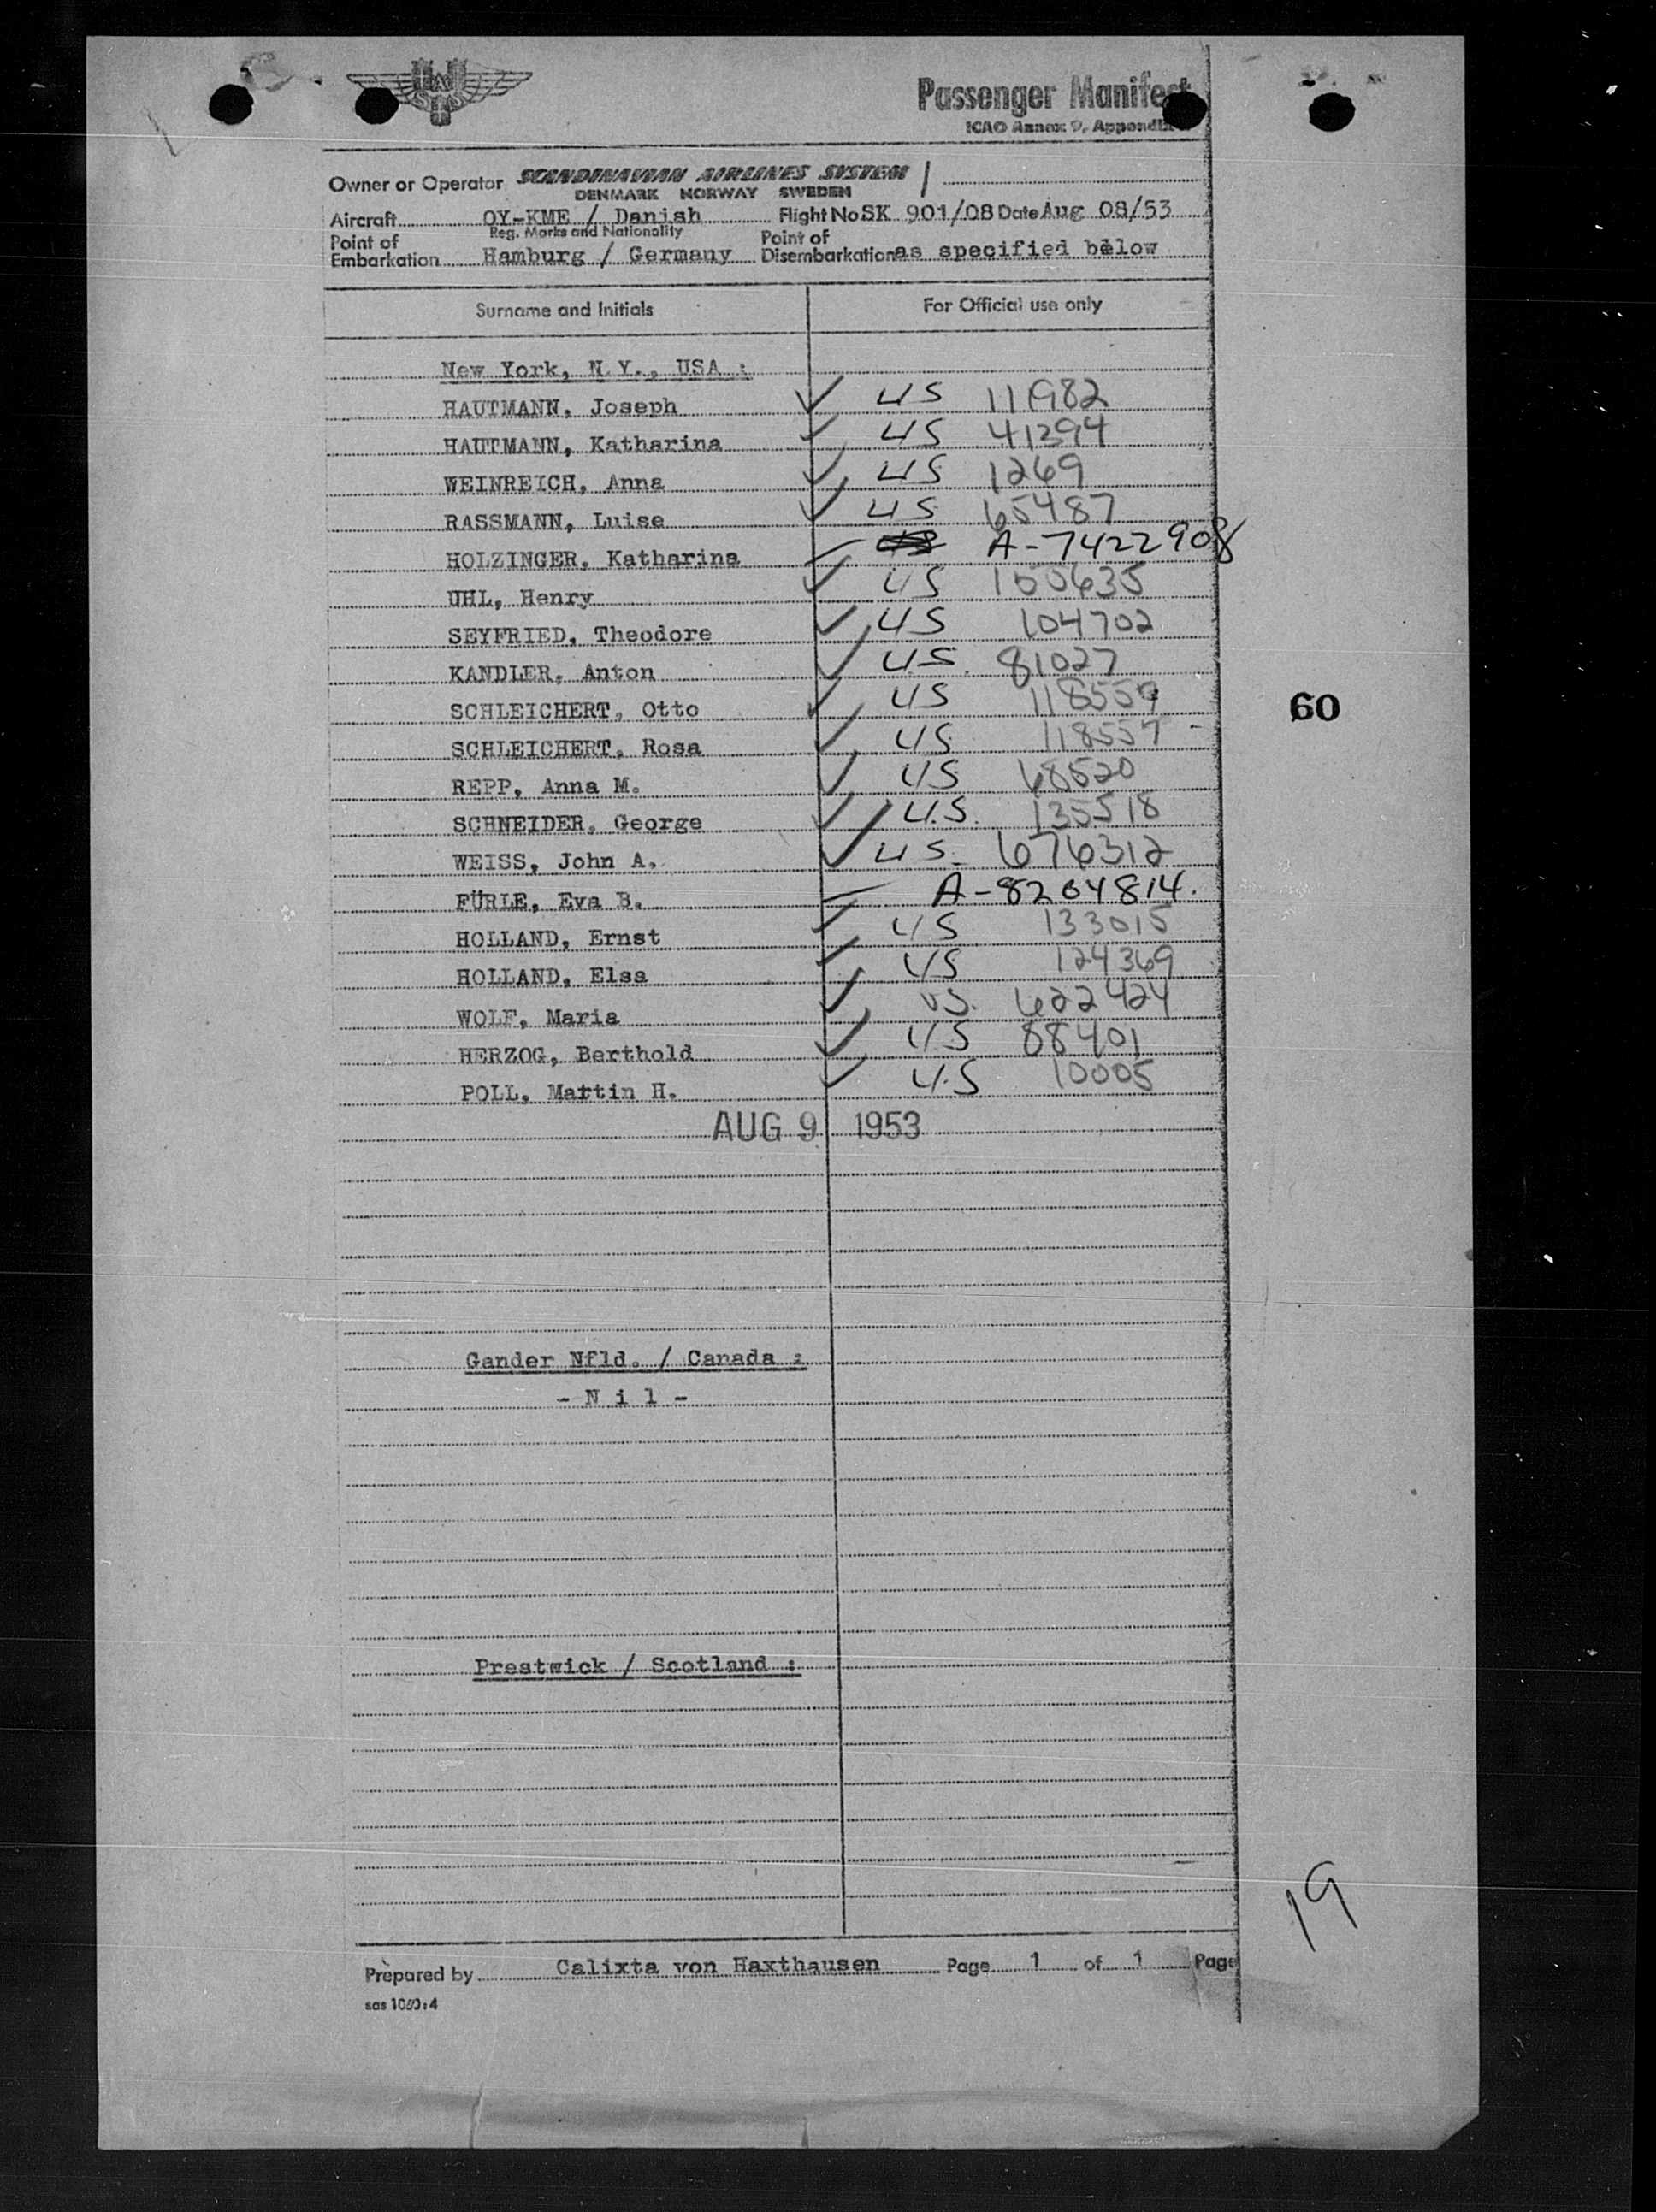 SAS
Passenger Manifest
ICAO Annex 9, Appendix
Owner or Operator SCANDINAVIAN AIRLINES SYSTEM
DENMARK NORWAY SWEDEN
Aircraft OY-KME / Danish Flight No SK 901/08 Date Aug 08/53
Reg. Marks and Nationality
Point of Embarkation Hamburg / Germany Point of Disembarkation as specified below
Surname and Initials For Official use only
New York, N.Y., USA :
HAUTMANN, Joseph ✓ US 11982
HAUTMANN, Katharina ✓ US 41294
WEINREICH, Anna ✓ US 1269
RASSMANN, Luise ✓ US 65487
HOLZINGER, Katharina A-7422908
UHL, Henry ✓ US 150635
SEYFRIED, Theodore ✓ US 104702
KANDLER, Anton ✓ US. 81027
SCHLEICHERT, Otto ✓ US 118559
SCHLEICHERT, Rosa ✓ US 118557
REPP, Anna M. ✓ US 68520
SCHNEIDER, George ✓ U.S. 135518
WEISS, John A. ✓ US. 676312
FÜRLE, Eva B. A-8204814.
HOLLAND, Ernst ✓ US 133015
HOLLAND, Elsa ✓ US 124369
WOLF, Maria ✓ US. 622424
HERZOG, Berthold ✓ US 88401
POLL, Martin H. ✓ U.S 10005
AUG 9 1953
60
Gander Nfld. / Canada :
- N i l -
Prestwick / Scotland :
19
Prepared by Calixta von Haxthausen Page 1 of 1 Page
sas 1050:4